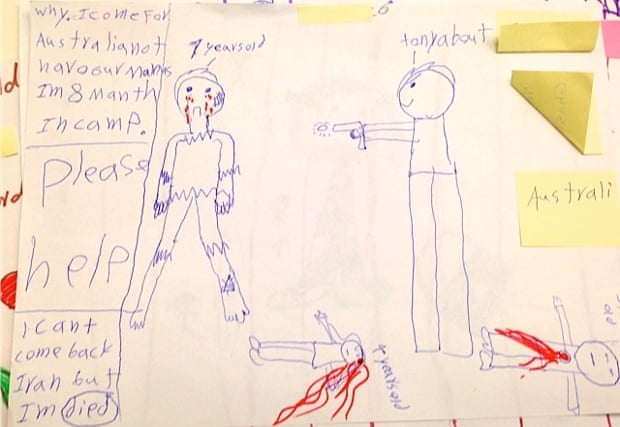 why.IcomeFor
Australianot
havoourmams
Im8manth
Incamp.
please
help
icant
comeback
Iran but
Im died
7yearsold
tonyabout
4yearsold
Australi